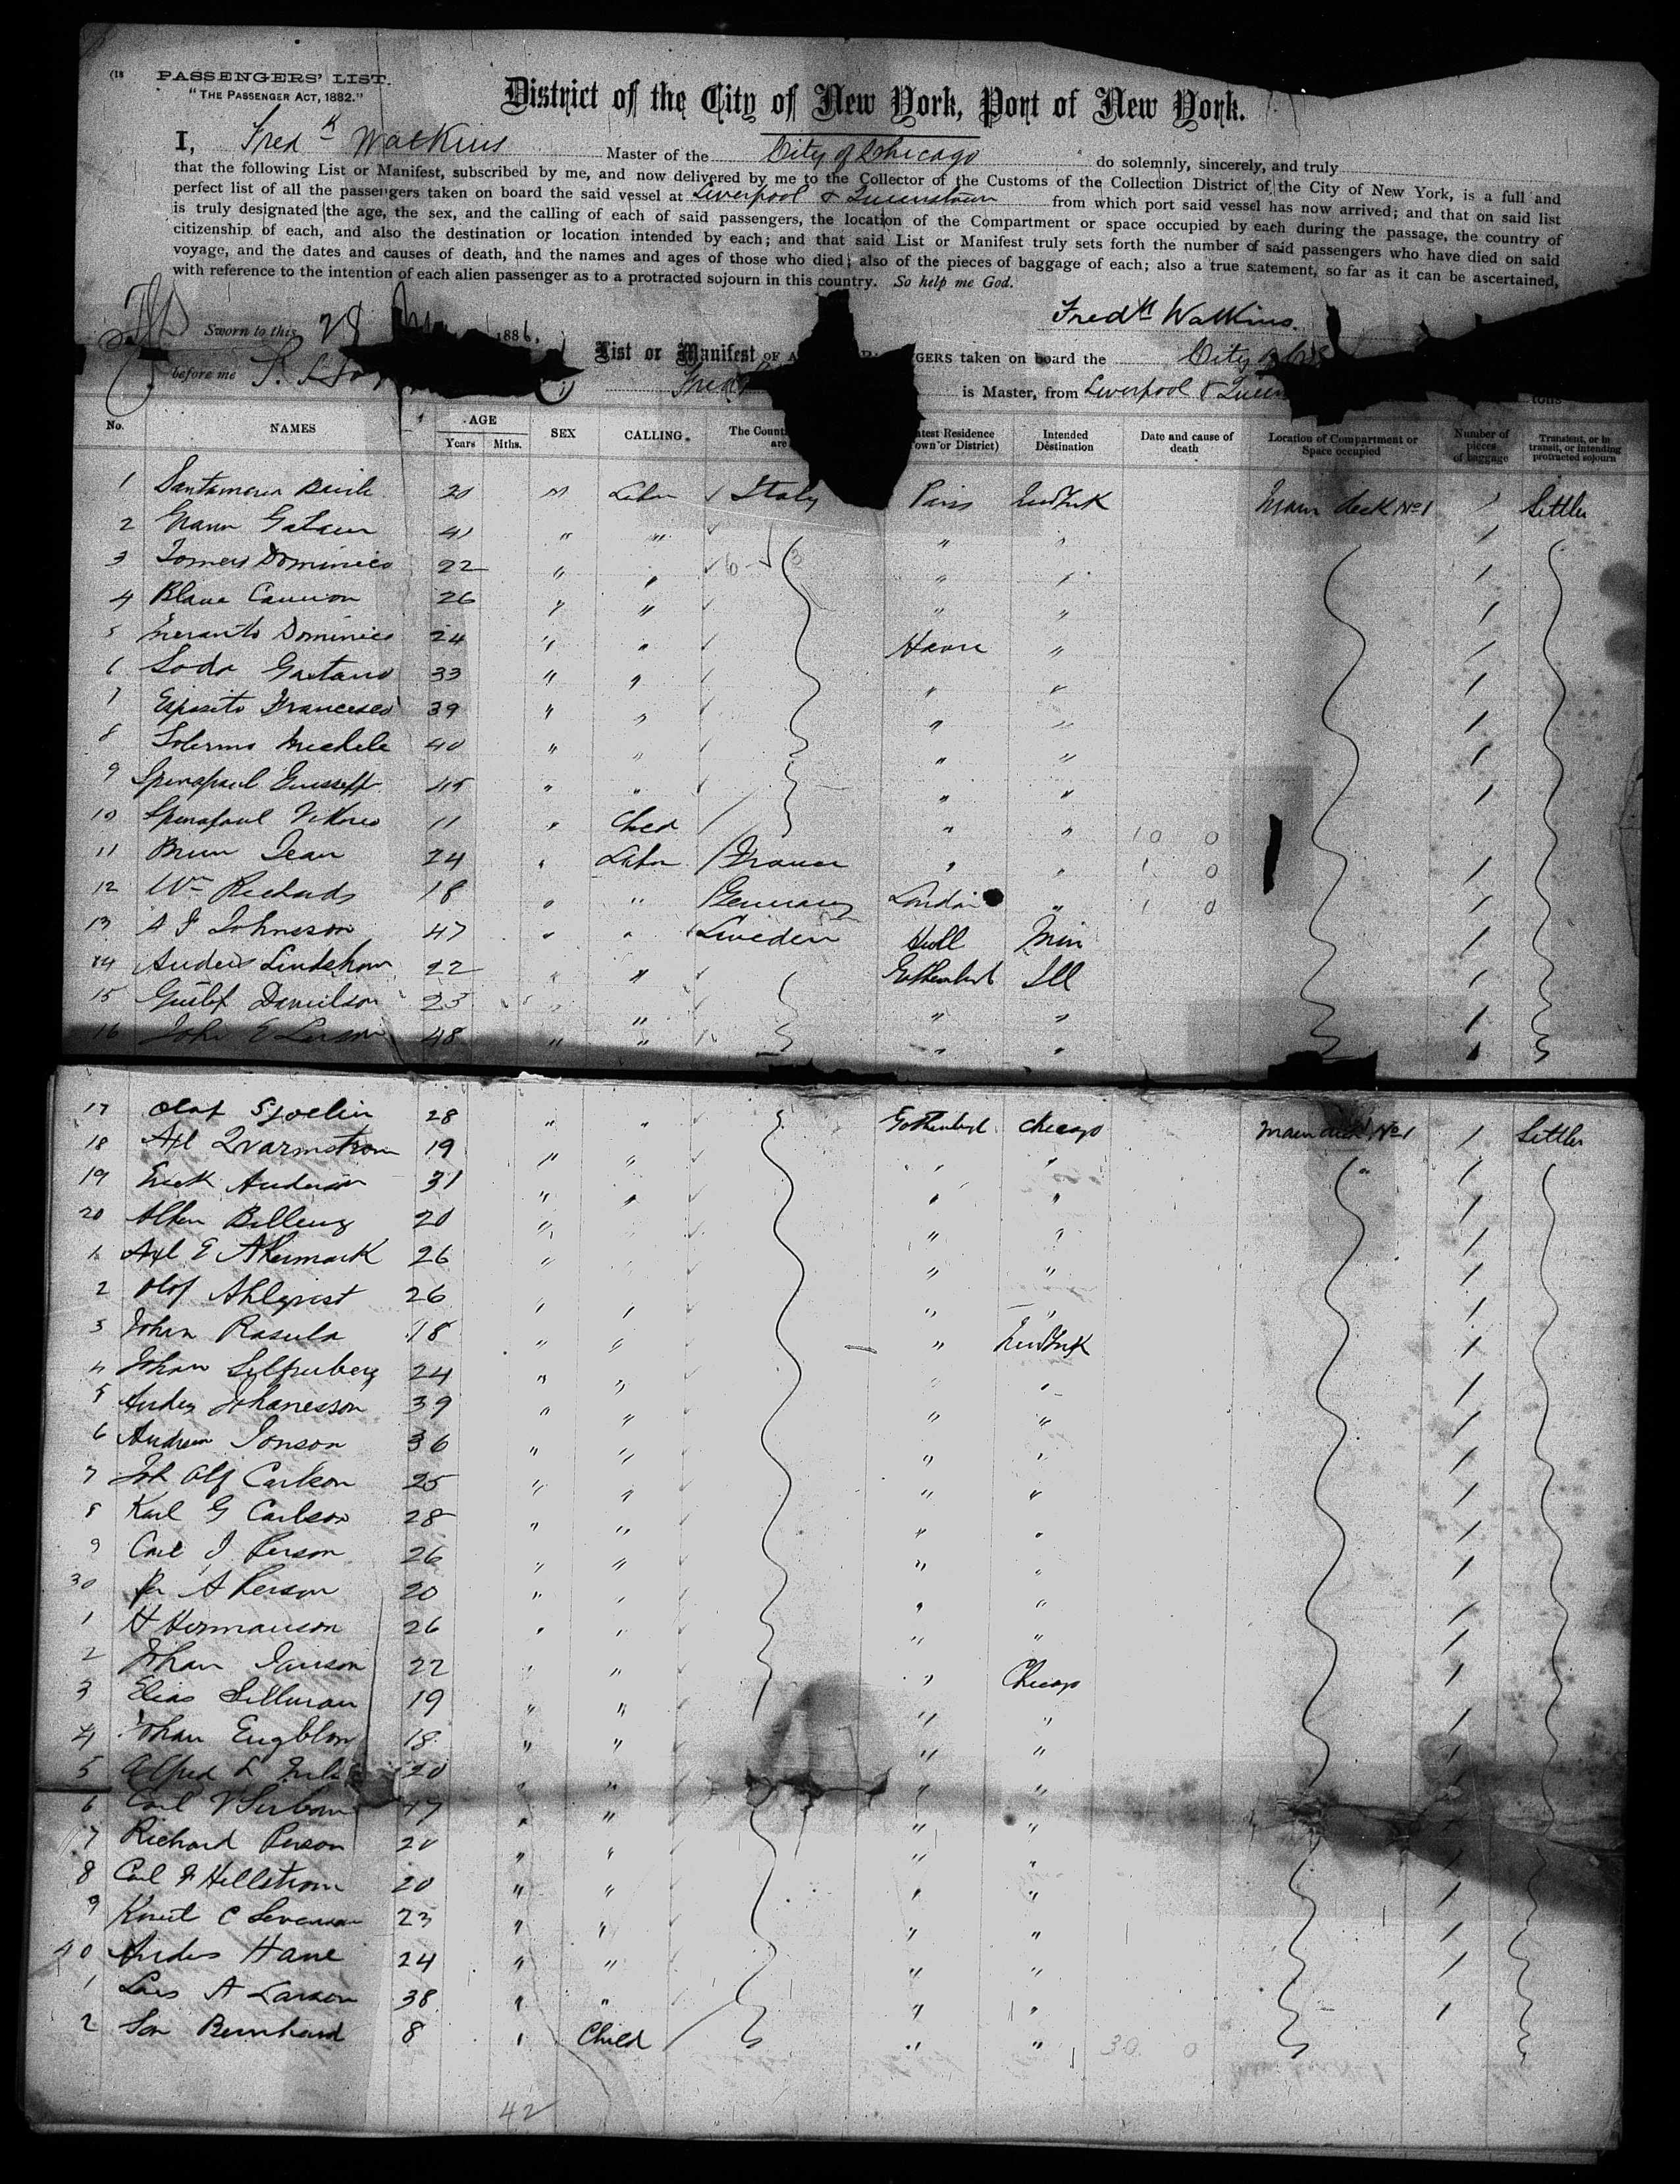 PASSENGERS' LIST.
"THE PASSENGER ACT, 1882."
District of the City of New York, Port of New York.
I, Fred k Watkins Master of the City of Chicago do solemnly, sincerely, and truly
that the following List or Manifest, subscribed by me, and now delivered by me to the Collector of the Customs of the Collection District of the City of New York, is a full and
perfect list of all the passengers taken on board the said vessel at Liverpool & Queenstown from which port said vessel has now arrived; and that on said list
is truly designated the age, the sex, and the calling of each of said passengers, the location of the Compartment or space occupied by each during the passage, the country of
citizenship of each, and also the destination or location intended by each; and that said List or Manifest truly sets forth the number of said passengers who have died on said
voyage, and the dates and causes of death, and the names and ages of those who died; also of the pieces of baggage of each; also a true statement, so far as it can be ascertained,
with reference to the intention of each alien passenger as to a protracted sojourn in this country. So help me God.
Fredk Watkins.
Sworn to this 28 1886.
before me
List or Manifest OF GERS taken on board the City of
Fred is Master, from Liverpool & Queen tons
No. NAMES AGE Years Mths. SEX CALLING. The Count are atest Residence own or District) Intended Destination Date and cause of death Location of Compartment or Space occupied Number of pieces of baggage Transient, or in transit, or intending protracted sojourn
1 21 M Labor Italy Paris New York Main deck No 1 / Settler
2 41 " " " " /
3 Dominico 22 " " " " /
4 26 " " " " /
5 Dominico 24 " " Havre " /
6 Soda Gaetano 33 " " " " /
7 Esposito Francesco 39 " " " " /
8 Michele 40 " " " " /
9 45 " " " " /
10 11 " Child " " 10 0
11 Brun Jean 24 " Labor France " " 1 0 /
12 Wm Richards 18 " " Germany London " 1 0 /
13 A F Johnsson 47 " " Sweden Hull Min /
14 Anders 22 " " Gothenburg Ill /
15 Gustef Danielson 23 " " " " /
16 John E Larson 48 " " " " /
17 Olof Sjoelin 28 " " Gothenburg Chicago Main deck No 1 / Settler
18 Axl Qvarnstrom 19 " " " " /
19 Erick Anderson 31 " " " " /
20 Billeng 20 " " " " /
1 Axl E Akermark 26 " " " " /
2 Olof Ahlqvist 26 " " " " /
3 Johan Rasula 18 " " " New York /
4 Johan Silfverberg 24 " " " " /
5 Anders Johanesson 39 " " " " /
6 Andrew Jonson 36 " " " " /
7 Joh Alf Carlson 25 " " " " /
8 Karl G Carlson 28 " " " " /
9 Carl J Person 26 " " " " /
30 Per A Person 20 " " " " /
1 H Hermanson 26 " " " " /
2 Johan Janson 22 " " " Chicago /
3 Elias Sillman 19 " " " " /
4 Johan Engblom 18 " " " " /
5 Alfred L 20 " " " " /
6 Carl V 47 " " " " /
7 Richard Person 20 " " " " /
8 Carl F Hellstrom 20 " " " " /
9 Knut C 23 " " " " /
40 Anders Hane 24 " " " " /
1 Lars A Larson 38 " " " " /
2 Son Bernhard 8 " Child " " 30 0
42